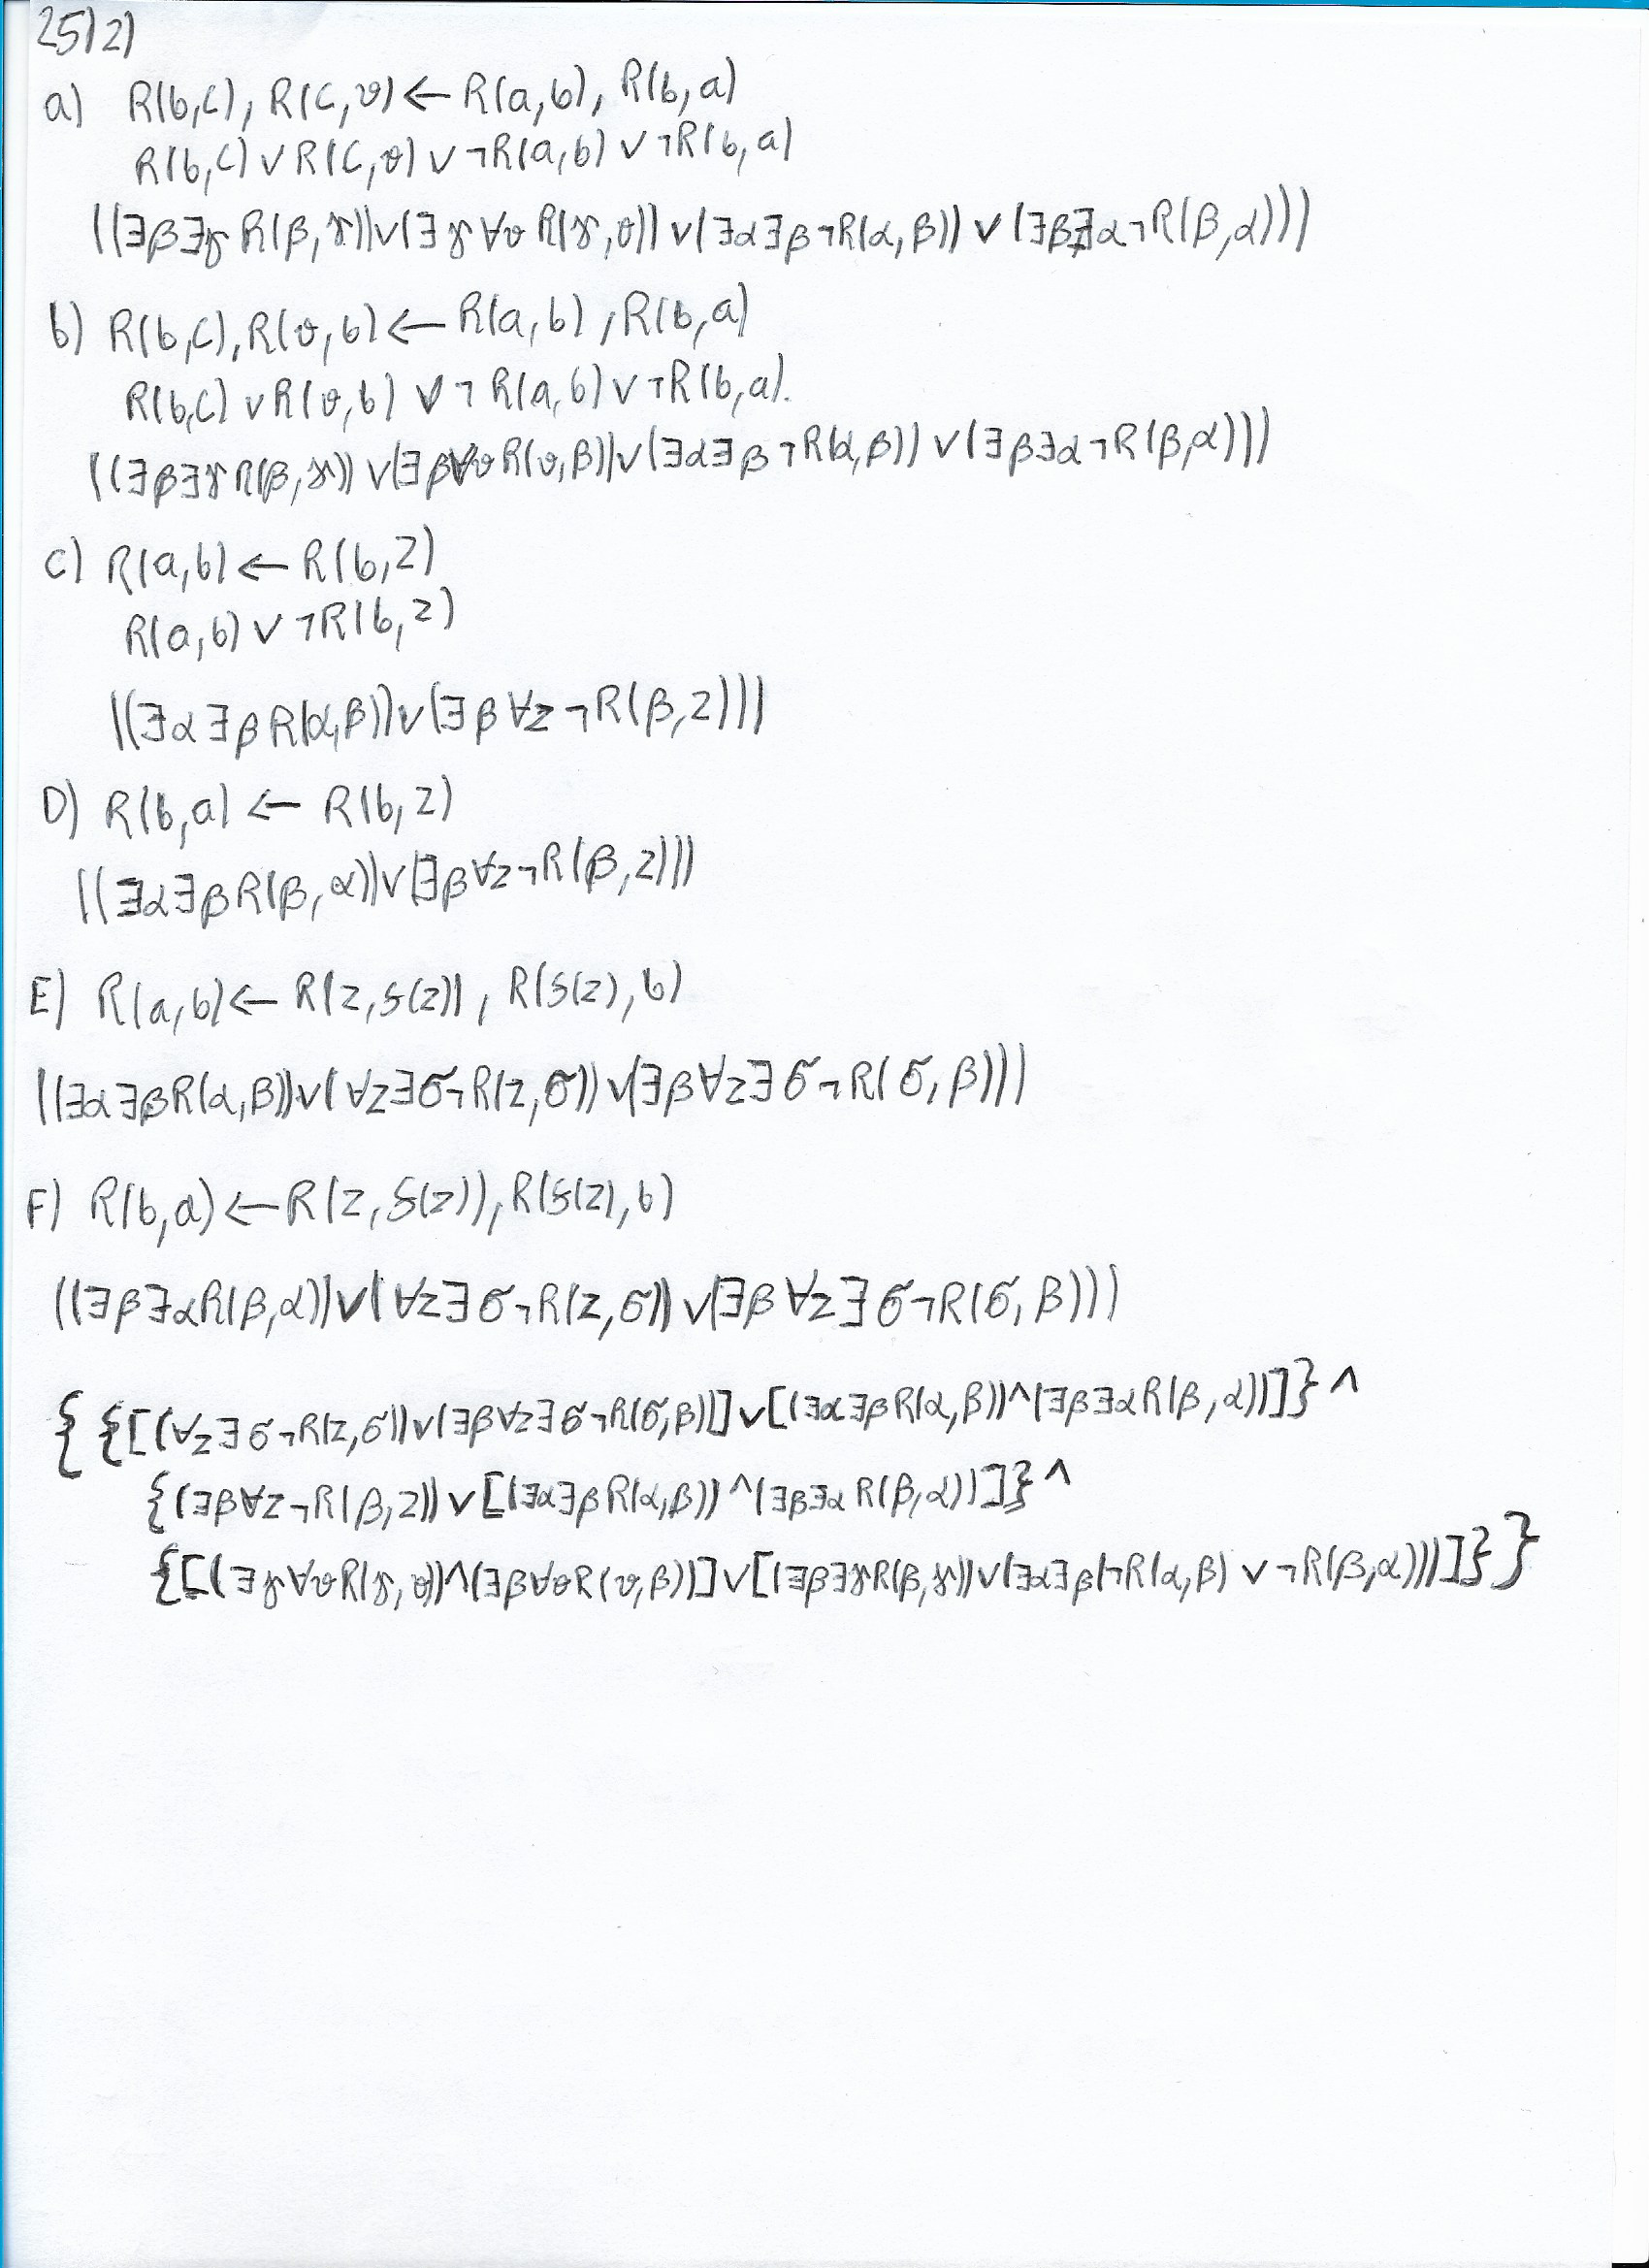 25)2)
a) R(b,c), R(c,v) ← R(a,b), R(b,a)
R(b,c) ∨ R(c,v) ∨ ¬R(a,b) ∨ ¬R(b,a)
((∃β∃γ R(β,γ))∨(∃γ ∀v R(γ,v)) ∨(∃α∃β¬R(α,β)) ∨ (∃β∃α¬R(β,α)))
b) R(b,c), R(v,b) ← R(a,b), R(b,a)
R(b,c) ∨ R(v,b) ∨ ¬R(a,b) ∨ ¬R(b,a).
((∃β∃γ R(β,γ)) ∨(∃β∀v R(v,β))∨(∃α∃β¬R(α,β)) ∨(∃β∃α¬R(β,α)))
C) R(a,b) ← R(b,z)
R(a,b) ∨ ¬R(b,z)
((∃α∃βR(α,β))∨(∃β∀z¬R(β,z)))
D) R(b,a) ← R(b,z)
((∃α∃βR(β,α))∨(∃β∀z¬R(β,z)))
E) R(a,b) ← R(z,s(z)), R(s(z),b)
((∃α∃βR(α,β))∨(∀z∃σ¬R(z,σ)) ∨(∃β∀z∃σ¬R(σ,β)))
F) R(b,a) ← R(z,s(z)), R(s(z),b)
((∃β∃αR(β,α))∨(∀z∃σ¬R(z,σ)) ∨(∃β∀z∃σ¬R(σ,β)))
{ {[(∀z∃σ¬R(z,σ))∨(∃β∀z∃σ¬R(σ,β))]∨[(∃α∃βR(α,β))^(∃β∃αR(β,α))]}^
{(∃β∀z¬R(β,z)) ∨[(∃α∃βR(α,β))^(∃β∃αR(β,α))]}^
{[(∃γ∀vR(γ,v))^(∃β∀vR(v,β))]∨[(∃β∃γR(β,γ))∨(∃α∃β(¬R(α,β) ∨ ¬R(β,α)))]}}